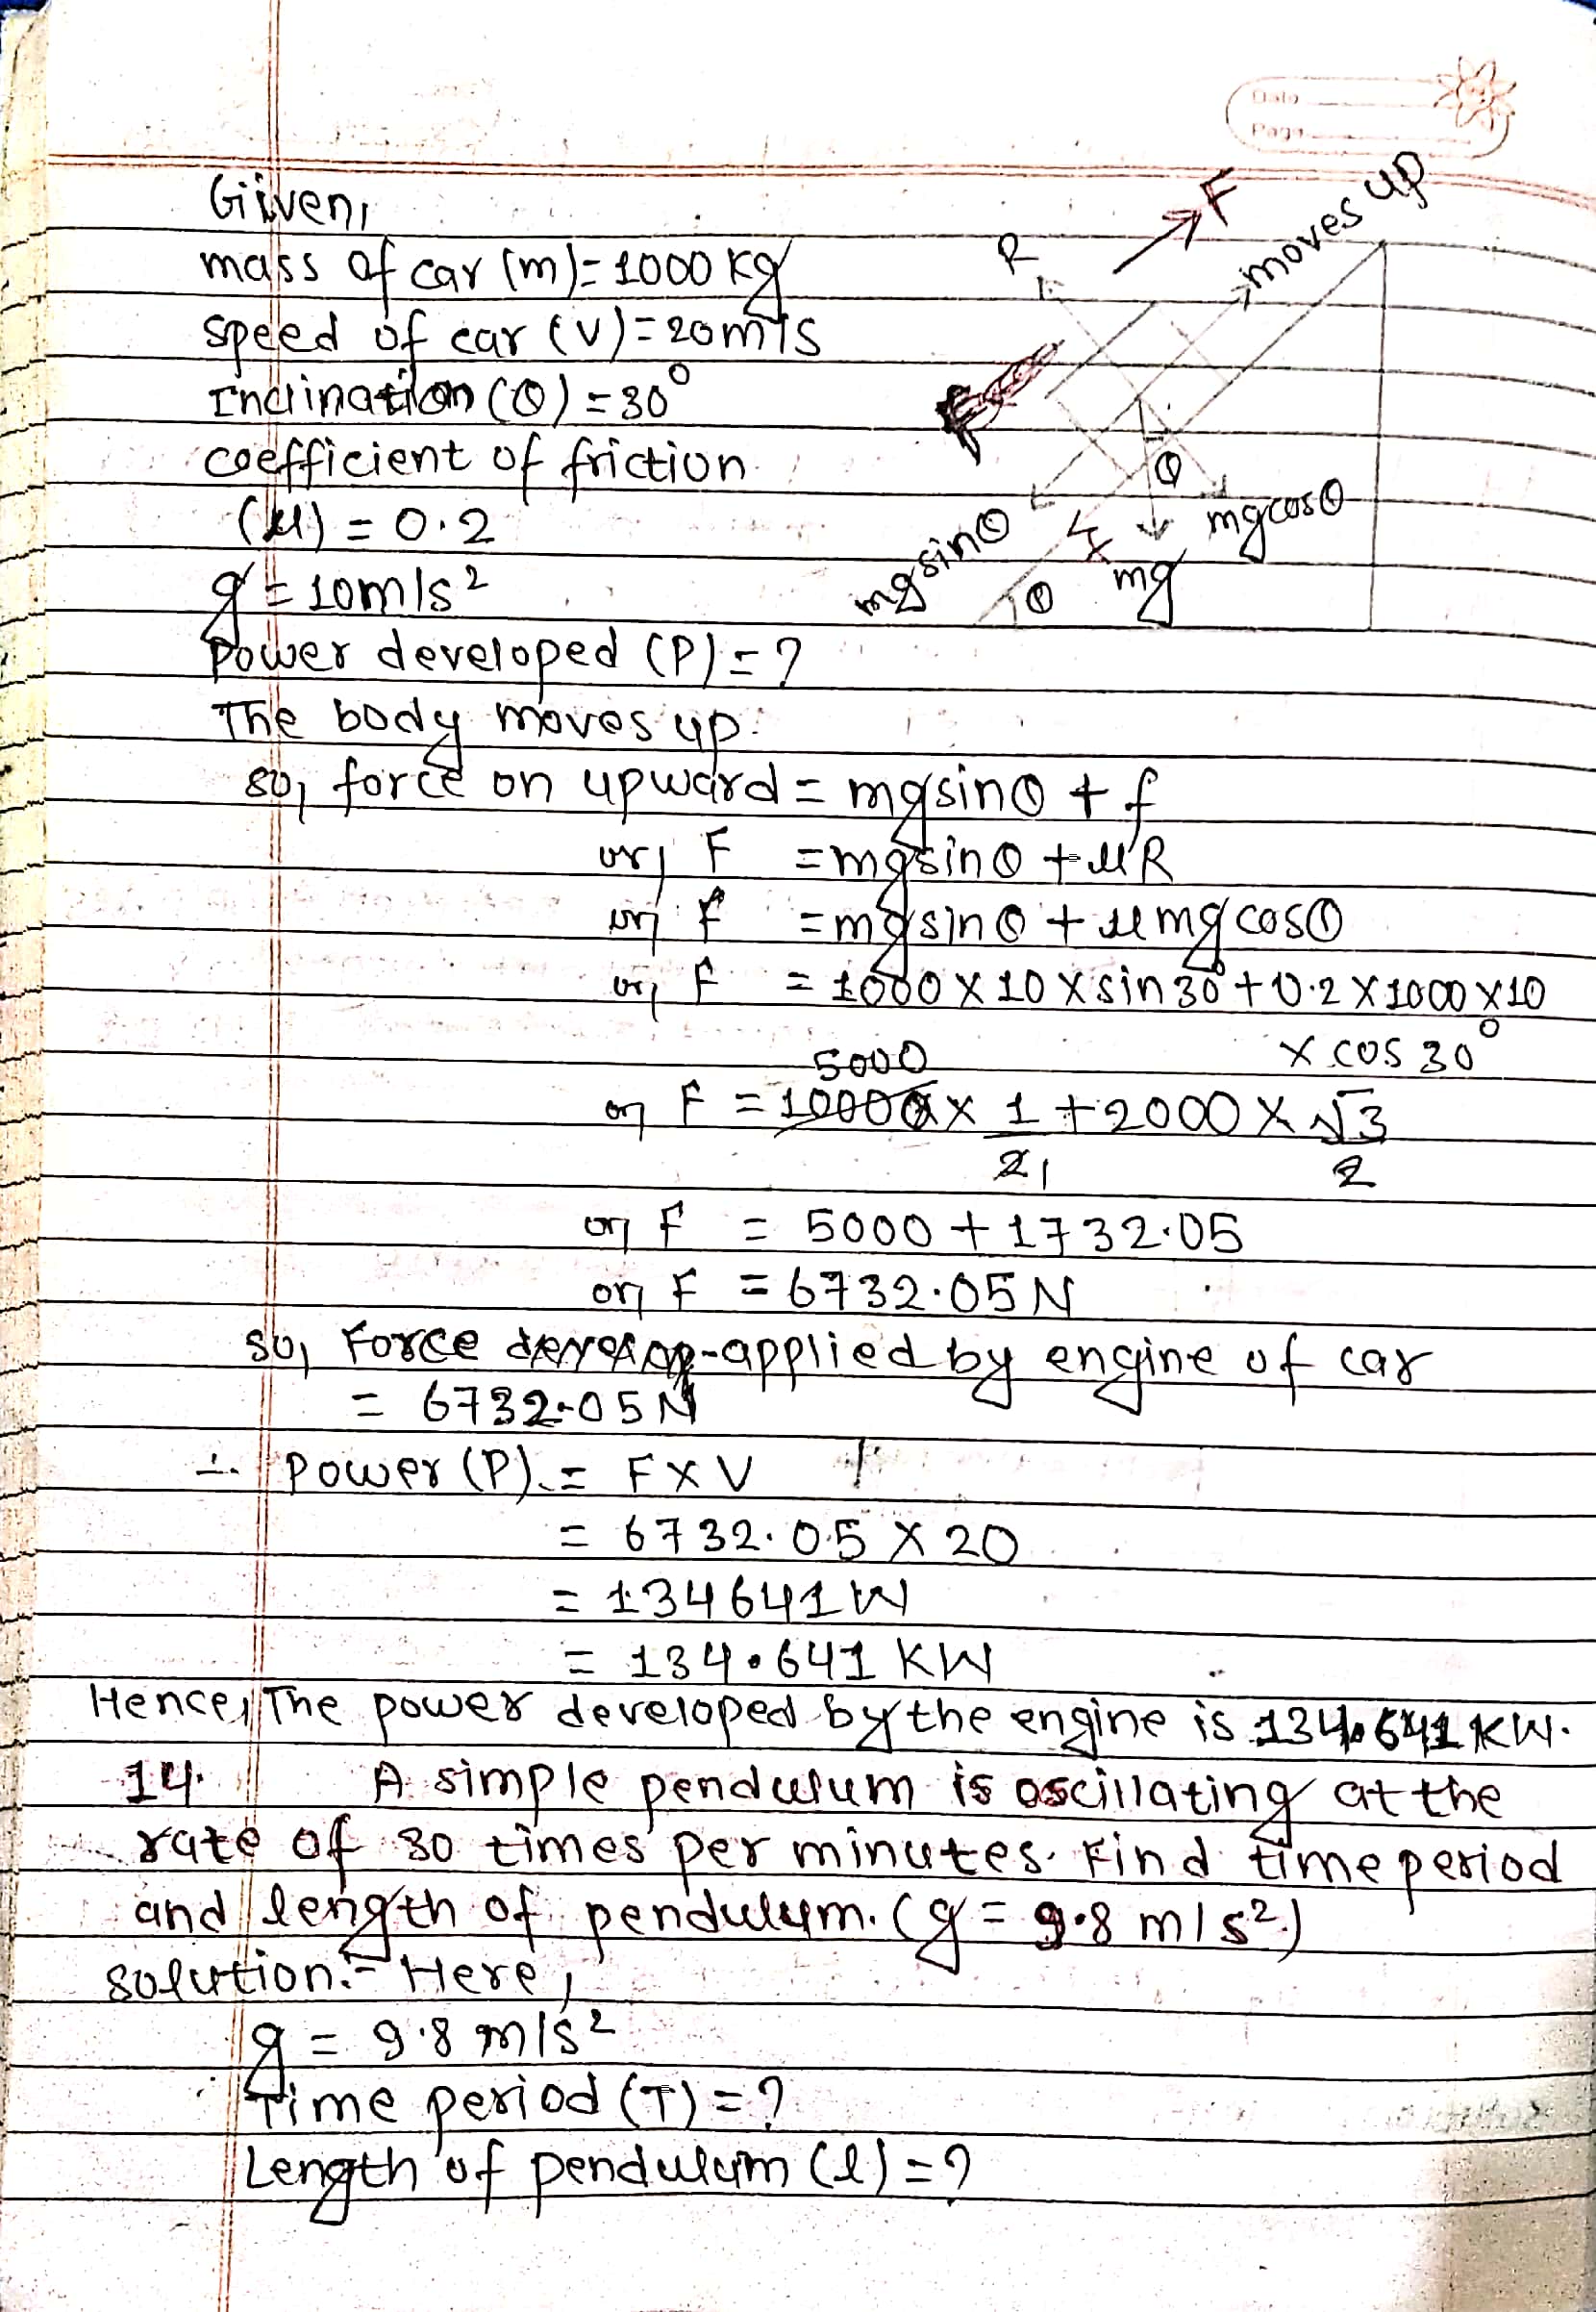 Date
Page
Given,
mass of car (m) = 1000 kg
speed of car (v) = 20 m/s
Inclination (θ) = 30°
coefficient of friction
(μ) = 0.2
g = 10m/s²
Power developed (P) = ?
R
F
moves up
θ
mgcosθ
mgsinθ
f
mg
θ
The body moves up.
so, force on upward = mgsinθ + f
or, F = mgsinθ + μR
or, F = mgsinθ + μmgcosθ
or, F = 1000 × 10 × sin30° + 0.2 × 1000 × 10
× cos 30°
5000
or, F = 10000 × 1/2 + 2000 × √3/2
1
or, F = 5000 + 1732.05
or, F = 6732.05 N
so, Force applied by engine of car
= 6732.05N
∴ Power (P) = F × V
= 6732.05 × 20
= 134641 W
= 134.641 KW
Hence, The power developed by the engine is 134.641 KW.
14. A simple pendulum is oscillating at the
rate of 30 times per minutes. Find time period
and length of pendulum. (g = 9.8 m/s².)
solution:- Here,
g = 9.8 m/s²
Time period (T) = ?
Length of pendulum (l) = ?